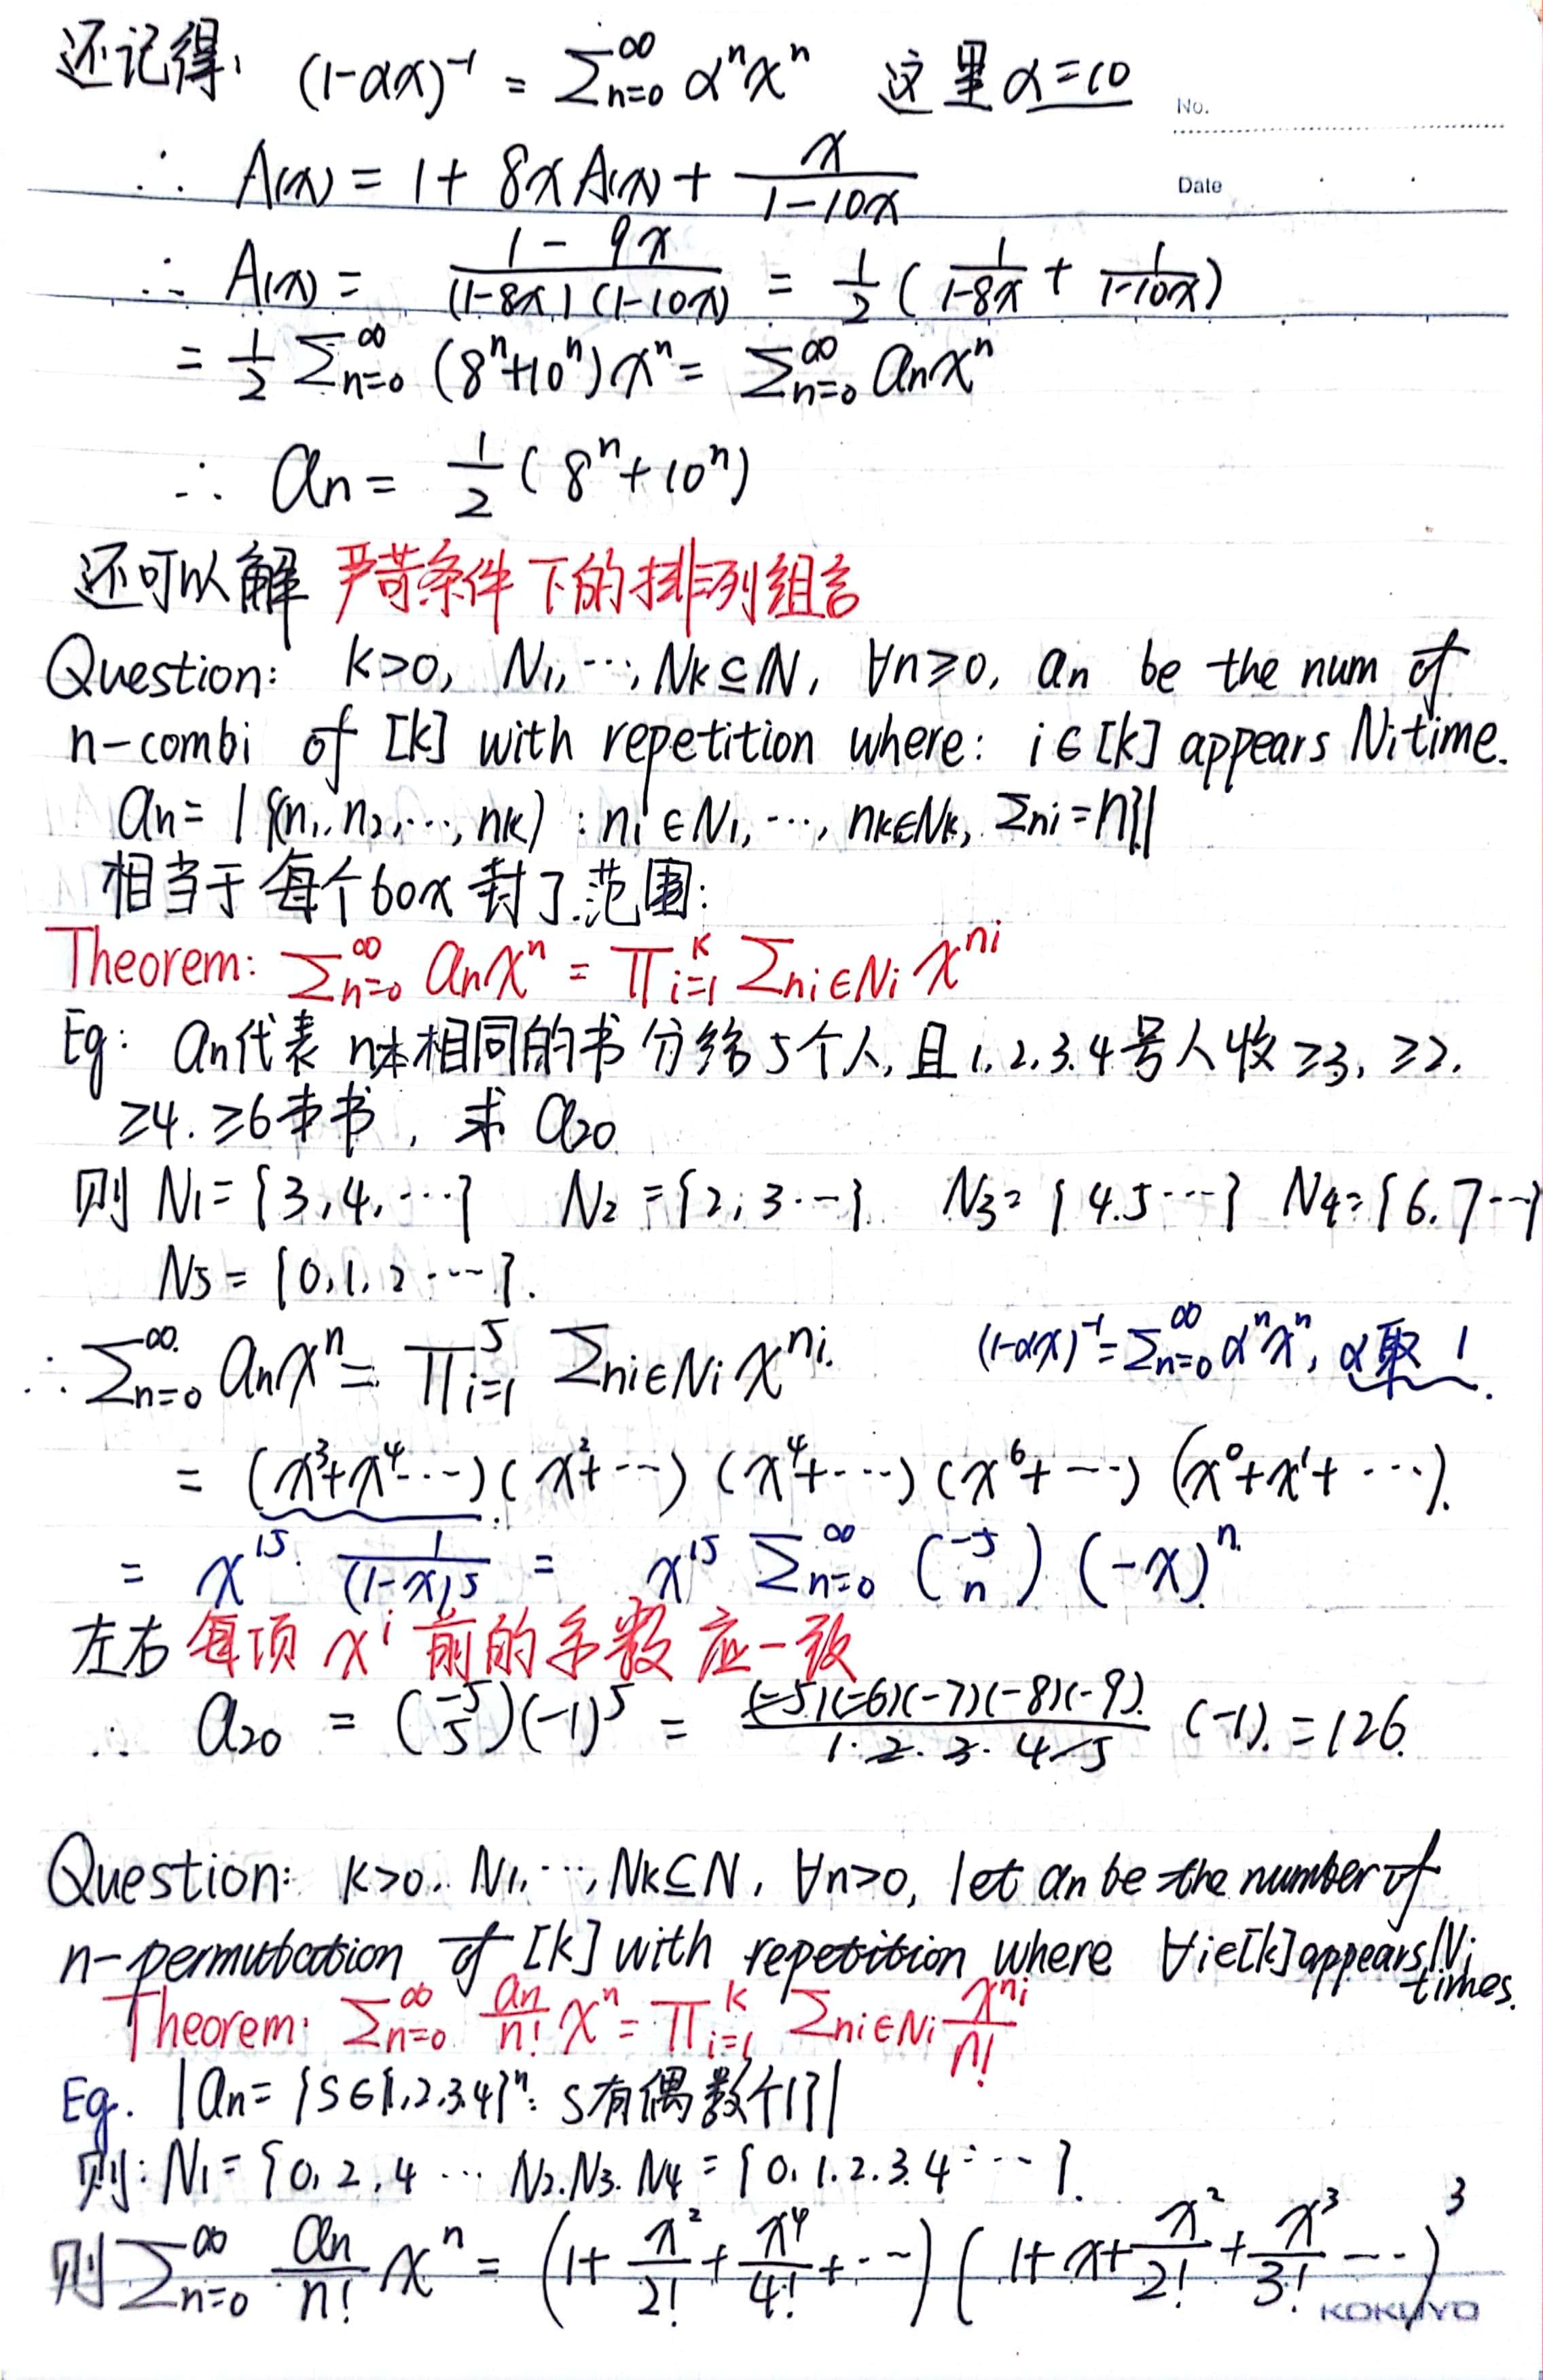 还记得: (1-αx)⁻¹ = ∑ₙ₌₀^∞ αⁿxⁿ 这里α=10
No.
Date
∴ A(x) = 1 + 8xA(x) + x/(1-10x)
∴ A(x) = (1-9x)/((1-8x)(1-10x)) = 1/2 (1/(1-8x) + 1/(1-10x))
= 1/2 ∑ₙ₌₀^∞ (8ⁿ+10ⁿ)xⁿ = ∑ₙ₌₀^∞ aₙxⁿ
∴ aₙ = 1/2 (8ⁿ+10ⁿ)
还可以解 严苛条件下的排列组合
Question: K>0, N₁, ⋯, Nₖ⊆ℕ, ∀n≥0, aₙ be the num of
n-combi of [k] with repetition where: i∈[k] appears Nᵢ time.
aₙ = |{(n₁, n₂, ⋯, nₖ) : n₁∈N₁, ⋯, nₖ∈Nₖ, Σnᵢ=n}|
相当于每个box封了范围:
Theorem: ∑ₙ₌₀^∞ aₙxⁿ = ∏ᵢ₌₁^k ∑_{nᵢ∈Nᵢ} x^{nᵢ}
Eg: aₙ代表n本相同的书分给5个人, 且1.2.3.4号人收≥3, ≥2,
≥4. ≥6本书, 求a₂₀
则 N₁={3,4,⋯} N₂={2,3⋯} N₃={4.5⋯} N₄={6.7⋯}
N₅={0,1,2⋯}.
∴ ∑ₙ₌₀^∞ aₙxⁿ = ∏ᵢ₌₁^5 ∑_{nᵢ∈Nᵢ} x^{nᵢ}. (1-αx)⁻¹=∑ₙ₌₀^∞ αⁿxⁿ, α取1.
= (x³+x⁴⋯)(x²+⋯)(x⁴+⋯)(x⁶+⋯)(x⁰+x¹+⋯).
= x¹⁵· 1/(1-x)⁵ = x¹⁵ ∑ₙ₌₀^∞ (-5 n) (-x)ⁿ
左右每项xⁱ前的系数应一致
∴ a₂₀ = (-5 5)(-1)⁵ = (-5)(-6)(-7)(-8)(-9)/1·2·3·4·5 (-1). = 126.
Question: K>0. N₁, ⋯, Nₖ⊆ℕ, ∀n>0, let aₙ be the number of
n-permutation of [k] with repetition where ∀i∈[k] appears Nᵢ times.
Theorem: ∑ₙ₌₀^∞ aₙ/n! xⁿ = ∏ᵢ₌₁^k ∑_{nᵢ∈Nᵢ} x^{nᵢ}/n!
Eg. |aₙ={S∈{1,2,3,4}ⁿ: S有偶数个1}|
则: N₁={0,2,4⋯ N₂.N₃.N₄={0.1.2.3.4⋯}.
则∑ₙ₌₀^∞ aₙ/n! xⁿ = (1+x²/2!+x⁴/4!+⋯)(1+x+x²/2!+x³/3!⋯)³
KOKUYO